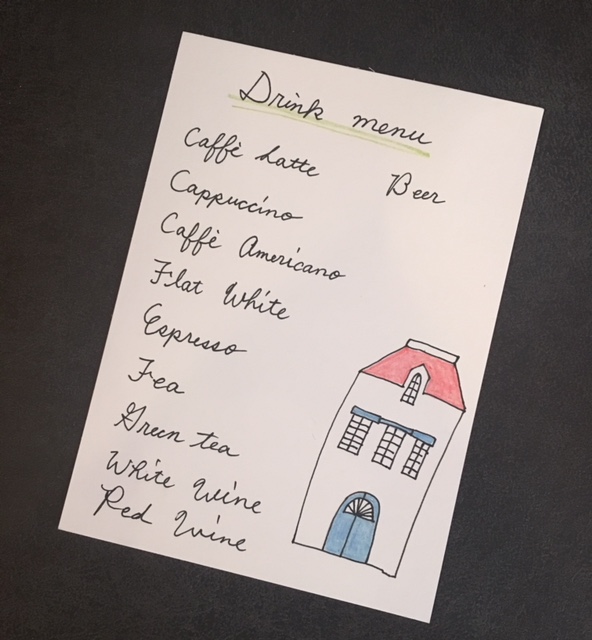 Drink menu
Caffè Latte
Cappuccino
Caffè Americano
Flat White
Espresso
Tea
Green tea
White Wine
Red Wine
Beer